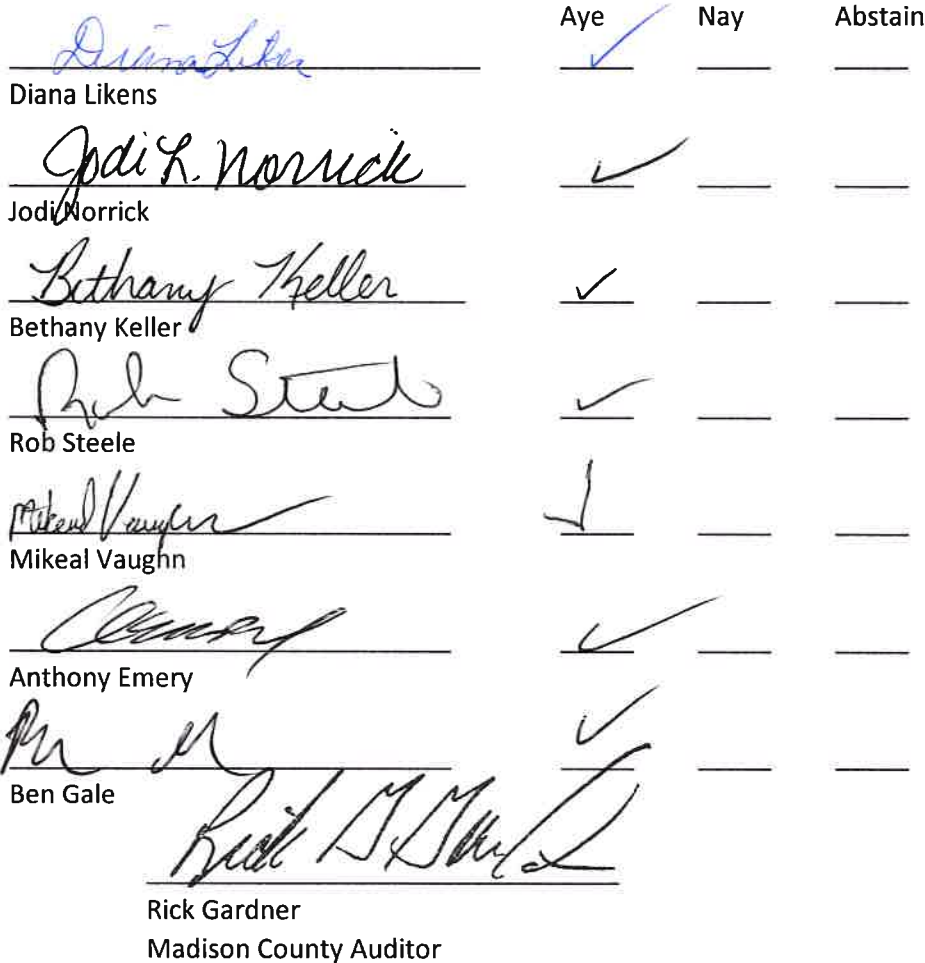 Aye Nay Abstain
Diana Likens
Diana Likens
Jodi L. Norrick
Jodi Norrick
Bethany Keller
Bethany Keller
Rob Steele
Rob Steele
Mikeal Vaughn
Mikeal Vaughn
Anthony Emery
Ben Gale
Rick Gardner
Madison County Auditor